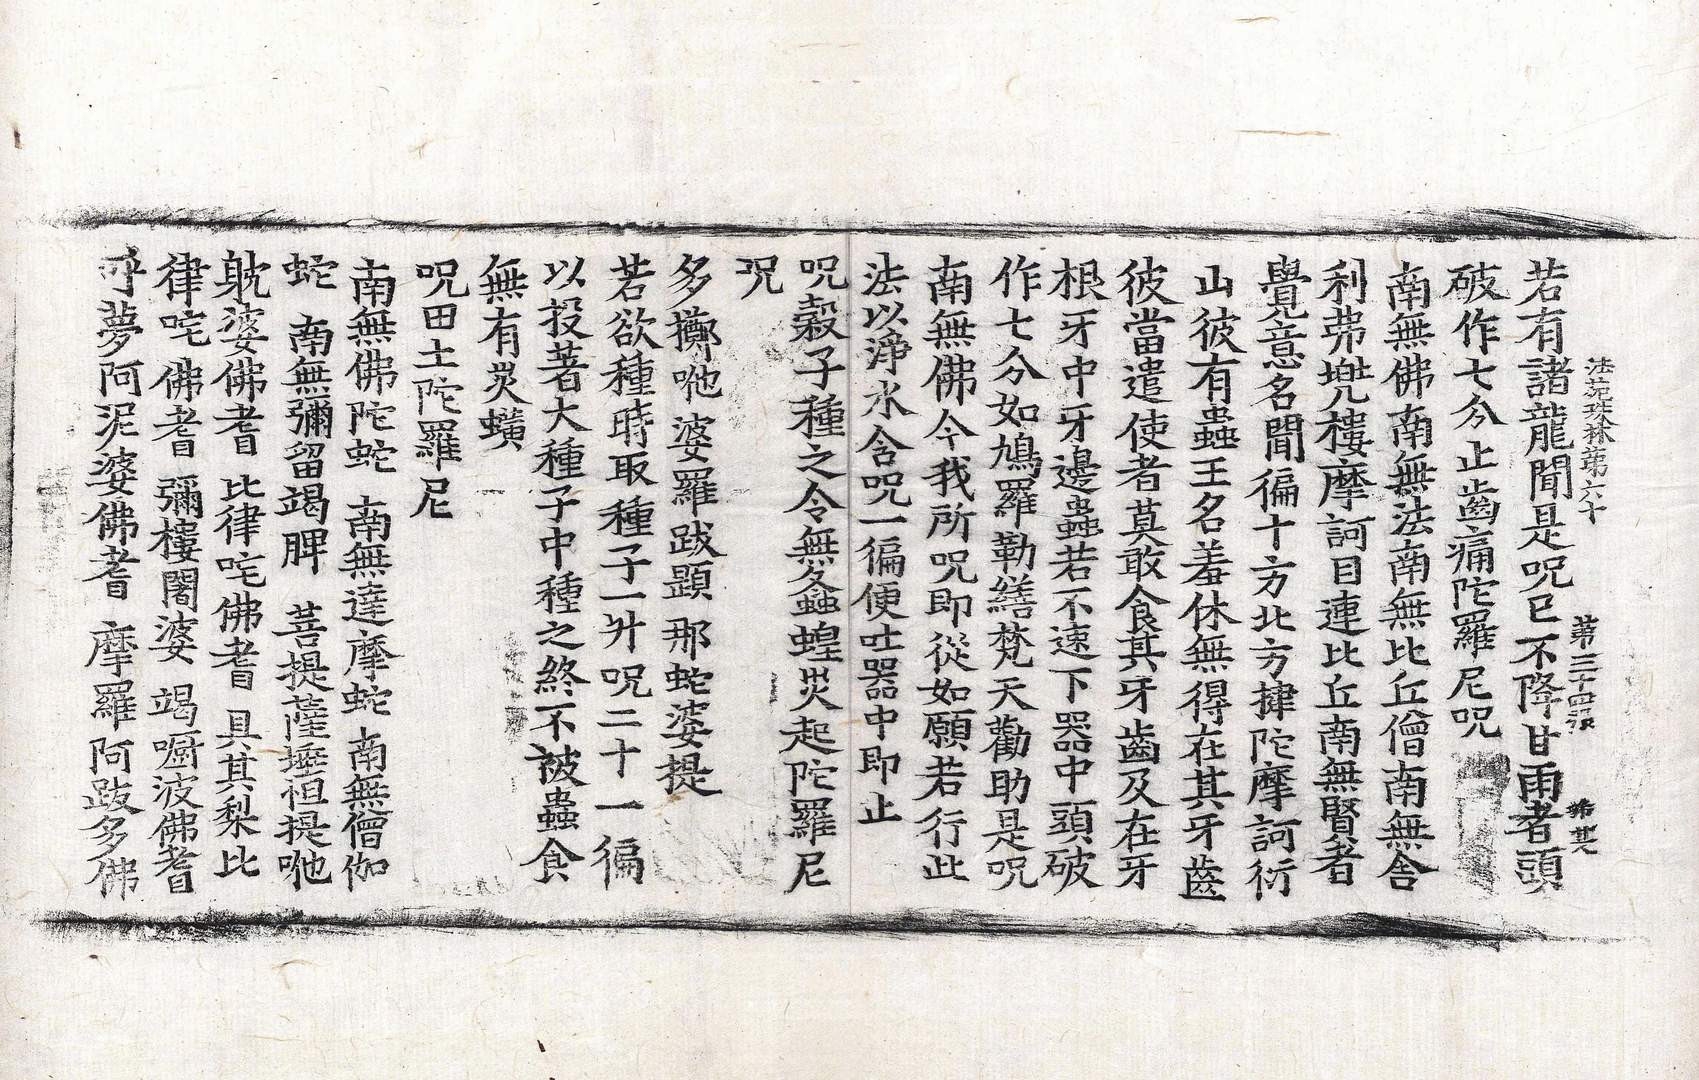 法苑珠林第六十　第三十四張
若有諸龍聞是呪已不降甘雨者頭
破作七分止齒痛陀羅尼呪
南無佛南無法南無比丘僧南無舍
利弗兠樓摩訶目連比丘南無賢者
覺意名聞徧十方北方揵陀摩訶衍
山彼有蟲王名羞休無得在其牙齒
彼當遣使者莫敢食其牙齒及在牙
根牙中牙邊蟲若不速下器中頭破
作七分如鳩羅勒繕梵天勸助是呪
南無佛令我所呪即從如願若行此
法以淨水含呪一徧便吐器中即止
呪穀子種之令無災蝗災起陀羅尼
呪
多擲吔 婆羅跋題 那蛇婆提
若欲種時取種子一升呪二十一徧
以投著大種子中種之終不被蟲食
無有災蟥
呪田土陀羅尼
南無佛陀蛇 南無達摩蛇 南無僧伽
蛇 南無彌留竭脾 菩提薩埵袒提吔
躭婆佛耆 比律咤佛耆 具其梨比
律咤佛耆 彌樓闍婆 竭啒波佛耆
呼夢阿泥婆佛耆 摩羅阿跋多佛